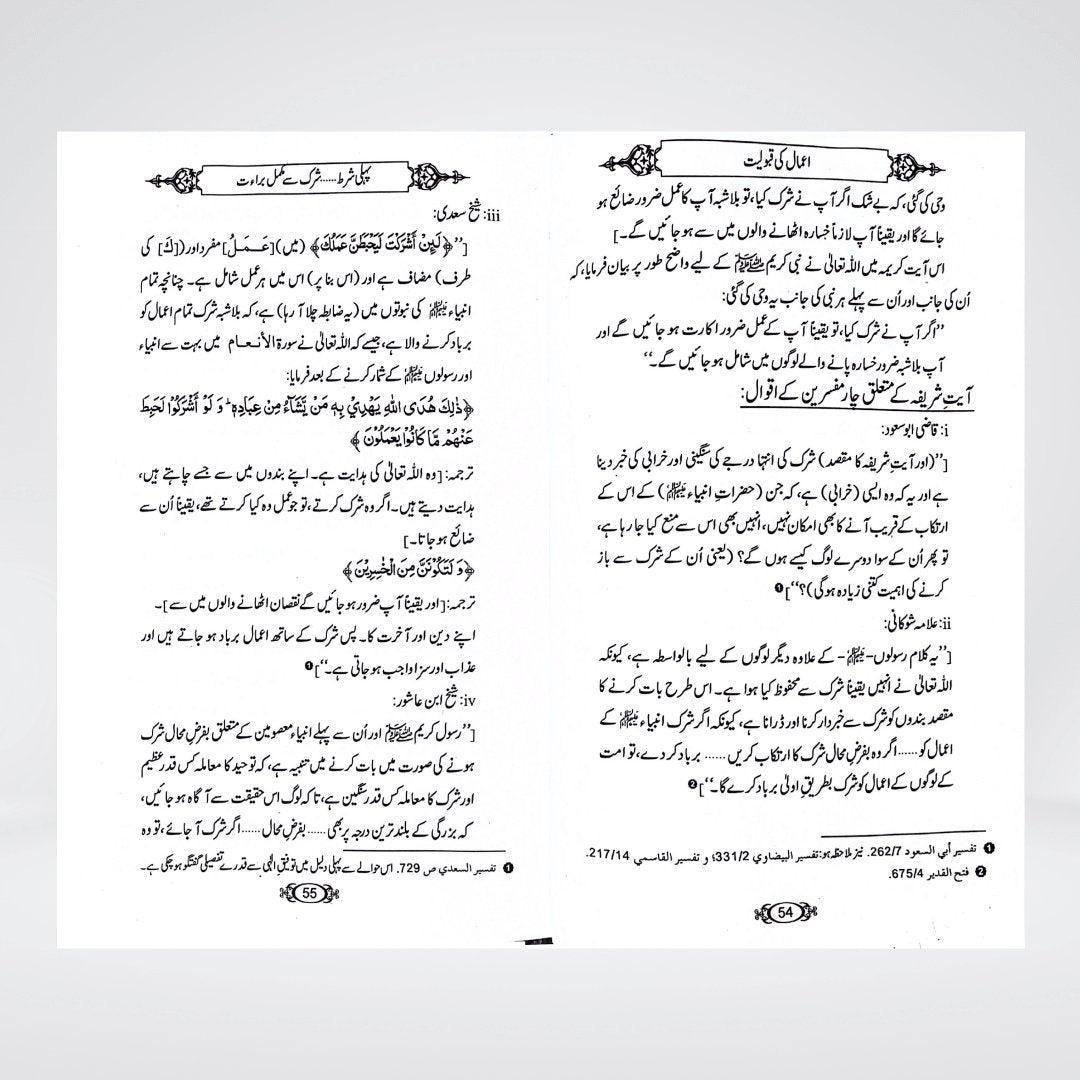 اعمال کی قبولیت
وحی کی گئی، کہ بے شک اگر آپ نے شرک کیا، تو بلاشبہ آپ کا عمل ضرور ضائع ہو
جائے گا اور یقیناً آپ لازماً خسارہ اٹھانے والوں میں سے ہو جائیں گے۔]
اس آیت کریمہ میں اللہ تعالیٰ نے نبی کریم ﷺ کے لیے واضح طور پر بیان فرمایا، کہ
اُن کی جانب اور اُن سے پہلے ہر نبی کی جانب یہ وحی کی گئی:
’’اگر آپ نے شرک کیا، تو یقیناً آپ کے عمل ضرور اکارت ہو جائیں گے اور
آپ بلاشبہ ضرور خسارہ پانے والے لوگوں میں شامل ہو جائیں گے۔‘‘
آیتِ شریفہ کے متعلق چار مفسرین کے اقوال:
i: قاضی ابوسعود:
[’’(اور آیتِ شریفہ کا مقصد) شرک کی انتہا درجے کی سنگینی اور خرابی کی خبر دینا
ہے اور یہ کہ وہ ایسی (خرابی) ہے، کہ جن (حضراتِ انبیاء علیہم السلام) کے اس کے
ارتکاب کے قریب آنے کا بھی امکان نہیں، انہیں بھی اس سے منع کیا جا رہا ہے،
تو پھر اُن کے سوا دوسرے لوگ کیسے ہوں گے؟ (یعنی اُن کے شرک سے باز
کرنے کی اہمیت کتنی زیادہ ہوگی)؟‘‘] ❶
ii: علامہ شوکانی:
[’’یہ کلام رسولوں- علیہم السلام - کے علاوہ دیگر لوگوں کے لیے بالواسطہ ہے، کیونکہ
اللہ تعالیٰ نے انہیں یقیناً شرک سے محفوظ کیا ہوا ہے۔ اس طرح بات کرنے کا
مقصد بندوں کو شرک سے خبردار کرنا اور ڈرانا ہے، کیونکہ اگر شرک انبیاء علیہم السلام کے
اعمال کو ...... اگر وہ بفرضِ محال شرک کا ارتکاب کریں ...... برباد کر دے، تو امت
کے لوگوں کے اعمال کو شرک بطریقِ اولیٰ برباد کرے گا۔‘‘] ❷
❶ تفسير أبي السعود 262/7. نیز ملاحظہ ہو: تفسير البيضاوي 331/2؛ و تفسير القاسمي 217/14.
❷ فتح القدير 675/4.
54
پہلی شرط ...... شرک سے مکمل براءت
iii: شیخ سعدی:
[’’﴿لَئِنْ أَشْرَكْتَ لَيَحْبَطَنَّ عَمَلُكَ﴾ (میں) [عَـمَـلُ] مفرد اور ([كَ] کی
طرف) مضاف ہے اور (اس بنا پر) اس میں ہر عمل شامل ہے۔ چنانچہ تمام
انبیاء علیہم السلام کی نبوتوں میں (یہ ضابطہ چلا آ رہا) ہے، کہ بلاشبہ شرک تمام اعمال کو
برباد کرنے والا ہے، جیسے کہ اللہ تعالیٰ نے سورۃ الأنعام میں بہت سے انبیاء
اور رسولوں علیہم السلام کے شمار کرنے کے بعد فرمایا:
﴿ذٰلِكَ هُدَى اللهِ يَهْدِيْ بِهٖ مَنْ يَّشَآءُ مِنْ عِبَادِهٖ ؕ وَ لَوْ أَشْرَكُوْا لَحَبِطَ
عَنْهُمْ مَّا كَانُوْا يَعْمَلُوْنَ﴾
ترجمہ: [وہ اللہ تعالیٰ کی ہدایت ہے۔ اپنے بندوں میں سے جسے چاہتے ہیں،
ہدایت دیتے ہیں۔ اگر وہ شرک کرتے، تو جو عمل وہ کیا کرتے تھے، یقیناً اُن سے
ضائع ہو جاتا۔]
﴿وَ لَتَكُوْنَنَّ مِنَ الْخٰسِرِيْنَ﴾
ترجمہ: [اور یقیناً آپ ضرور ہو جائیں گے نقصان اٹھانے والوں میں سے]۔
اپنے دین اور آخرت کا۔ پس شرک کے ساتھ اعمال برباد ہو جاتے ہیں اور
عذاب اور سزا واجب ہو جاتی ہے۔‘‘] ❶
iv: شیخ ابن عاشور:
[’’رسول کریم ﷺ اور اُن سے پہلے انبیاء معصومین کے متعلق بفرضِ محال شرک
ہونے کی صورت میں بات کرنے میں تنبیہ ہے، کہ توحید کا معاملہ کس قدر عظیم
اور شرک کا معاملہ کس قدر سنگین ہے، تاکہ لوگ اس حقیقت سے آگاہ ہو جائیں،
کہ بزرگی کے بلند ترین درجہ پر بھی ...... بفرضِ محال ...... اگر شرک آ جائے، تو وہ
❶ تفسير السعدي ص 729. اس حوالے سے پہلی دلیل میں توفیقِ الٰہی سے قدرے تفصیلی گفتگو ہو چکی ہے۔
55